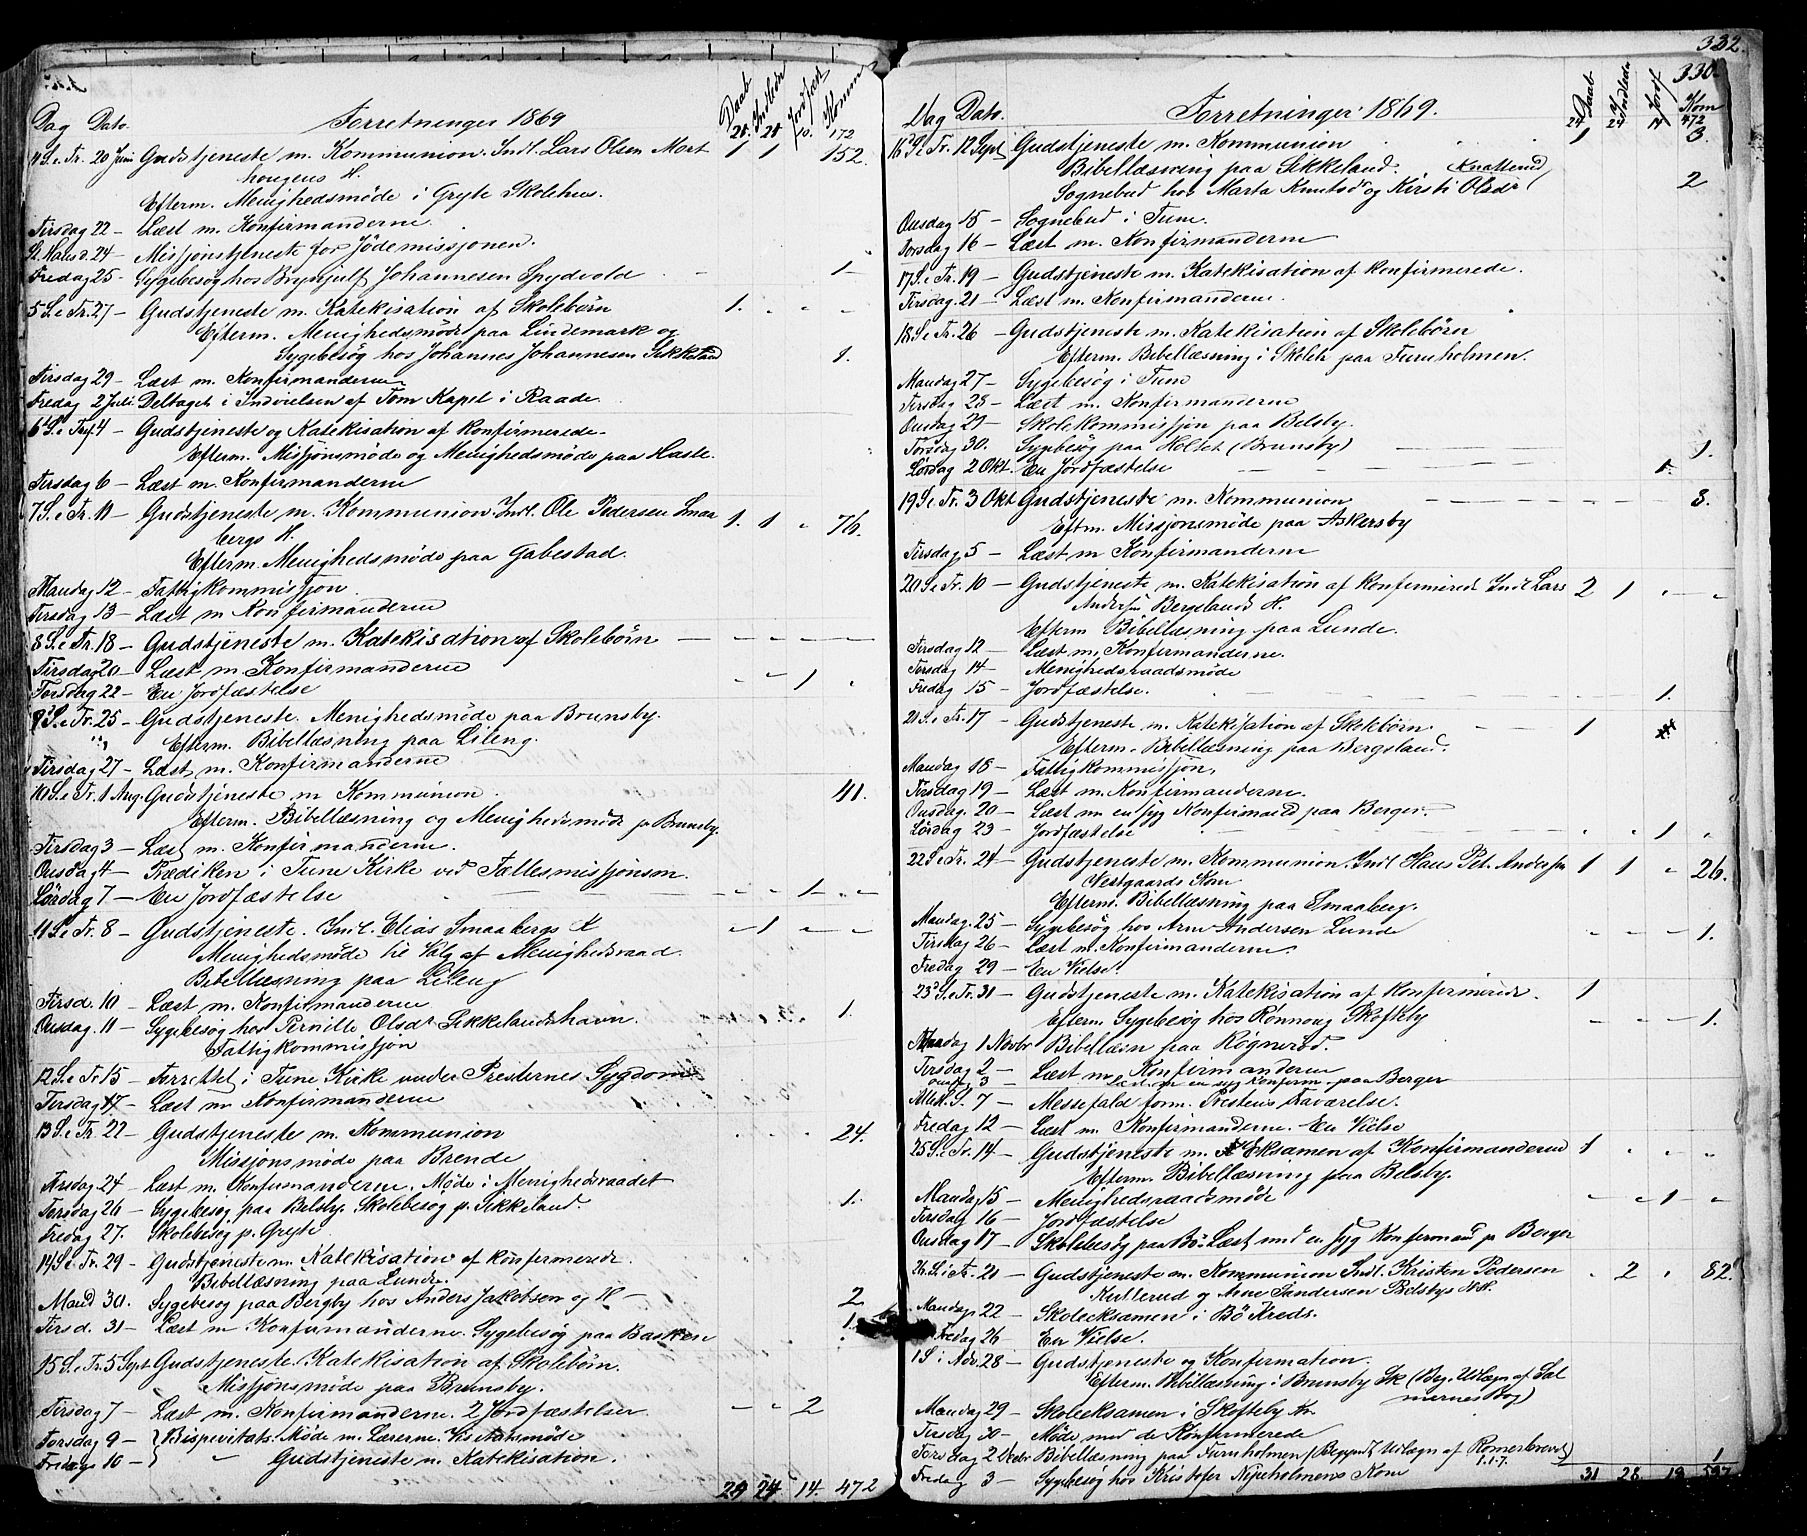 Dag Dato. Forretninger 1869 Daab Indledn Jordfæst Komm
20. 20 10. 172
4 S. e. Tr. 20 Juni Gudstjeneste m. Kommunion. Indl. Lars Olsen Mort 1 1 152.
hougens H.
Efterm. Menighedsmöde i Gryte Skolehus.
Tirsdag 22 – Læst m. Konfirmanderne.
St. Hansd. 24 – Missjonstjeneste for Jödemissjonen.
Fredag 25 – Sygebesög hos Brynjulf Johannesen Spydvold – 1 –
5 S. e Tr. 27 – Gudstjeneste m. Katekisation af Skolebörn 1. - - -
Efterm. Menighedsmöde paa Lindemark og
Sygebesög hos Johannes Johannesen Sikkeland 1.
Tirsdag 29 – Læst m. Konfirmanderne
Fredag 2 Juli. Deltaget i Indvielsen af Tom Kapel i Raade.
6 S. e Tr. 4 – Gudstjeneste og Katekisation af konfirmerede.
Efterm. Missjonsmöde og Menighedsmöde paa Hasle.
Tirsdag 6 – Læst m. Konfirmanderne
7 S. e Tr. 11 – Gudstjeneste m. Kommunion. Indl. Ole Pedersen Smaa 1. 1 - 76.
bergs H.
Efterm. Menighedsmöde paa Gabestad.
Mandag 12 – Fattigkommissjon.
Tirsdag 13 – Læst m Konfirmanderne
8 S. e Tr. 18 – Gudstjeneste m. Katekisation af Skolebörn – – – – –
Tirsdag 20 – Læst m. Konfirmanderne
Torsdag 22 – En Jordfæstelse – – 1 -
9 S. e Tr. 25 – Gudstjeneste. Menighedsmöde paa Brunsby.
Efterm. Bibellæsning paa Lileng.
Tirsdag 27 – Læst m. Konfirmanderne
10 S. e Tr. 1 Aug. Gudstjeneste m Kommunion. 41.
Efterm. Bibellæsning og Menighedsmöde p. Brunsby.
Tirsdag 3 – Læst m. Konfirmanderne.
Onsdag 4 – Prædiken i Tune Kirke ved Fællesmissjonsm.
Lördag 7 – En Jordfæstelse – – – – 1 – –
11 S. e Tr. 8 – Gudstjeneste. Indl. Elias Smaabergs K – 1 – –
Menighedsmöde til Valg af Menighedsraad.
Bibellæsning paa Lileng
Tirsd. 10 – Læst m. Konfirmanderne
Onsdag. 11 – Sygebesög hos Pernille Olsdr Sikkelandshavn. 1.
Fattigkommissjon
12 S. e Tr 15 – Forrettet i Tune Kirke under Presternes Sygdom
Tirsdag 17 – Læst m Konfirmanderne
13 S. e Tr. 22 – Gudstjeneste m. Kommunion 24.
Missjonsmöde paa Brende
Tirsdag 24 – Læst m. Konfirmanderne. Möde i Menighedsraadet
Torsdag 26 – Sygebesög paa Belsby. Skolebesög p. Sikkeland. 1.
Fredag 27. Skolebesög p. Gryte
14 S. e Tr. 29 – Gudstjeneste m. Katekisation af konfirmerede.
Bibellæsning paa Lunde.
Mand 30. Sygebesög paa Bergby hos Anders Jakobsen og H – 2
Tirsd. 31 – Læst m Konfirmanderne. Sygebesög paa Bakken 1.
15 S. e Tr. 5 Sept. Gudstjeneste. Katekisation af Skolebörn.
Missjonsmöde paa Brunsby.
Tirsdag 7 – Læst m. Konfirmanderne. 2 Jordfæstelser – - 2
Torsdag 9 – } Bispevisitats. Möde m. Lærerne.
Fredag 10 – } Gudstjeneste m. Katekisation.
24 24. 14. 472
332.
330.
Dag Dato. Forretninger 1869. Daab Indledn Jordf Kom
24 24 14 472
16 S. e Tr. 12 Sept Gudstjeneste m. Kommunion 1 3.
Bibellæsning paa Sikkeland. Knatterud
Sognebud hos Marta Knutsdr og Kirsti Olsdr ( 2
Onsdag 15 – Sognebud i Tune.
Torsdag 16 – Læst m. Konfirmanderne
17 S. e Tr. 19 – Gudstjeneste m. Katekisation af konfirmerede.
Tirsdag. 21 – Læst m. Konfirmanderne.
18 S. e Tr. 26 – Gudstjeneste m. Katekisation af Skolebörn
Efterm. Bibellæsning i Skole paa Furuholmen.
Mandag 27 – Sygebesög i Tune
Tirsdag 28 – Læst m. Konfirmanderne
Onsdag 29 – Skolekommissjon paa Belsby.
Torsdag 30. Sygebesög paa Holtet (Brunsby) – – – – 1.
Lördag 2 Okt. En Jordfæstelse – – – – 1.
19 S. e Tr. 3 Okt Gudstjeneste m. Kommunion – – – – 8.
Eftm. Missjonsmöde paa Askersby
Tirsdag 5 – Læst m Konfirmanderne
20 S. e Tr. 10 – Gudstjeneste m. Katekisation af konfirmerede Indl Lars 2 1 - -
Andersen Bergslands H.
Efterm Bibellæsning paa Lunde.
Tirsdag 12 – Læst m. Konfirmanderne.
Torsdag 14 – Menighedsraadsmöde
Fredag 15 – Jordfæstelse. – – – 1.
21 S. e Tr. 17 – Gudstjeneste m. Katekisation af Skolebörn. 1
Efterm. Bibellæsning paa Bergsland.
Mandag 18 – Fattigkommissjon,
Tirsdag 19 – Læst m. Konfirmanderne.
Onsdag. 20 – Læst m en syg Konfirmand paa Berger.
Lördag 23 – Jordfæstelse – – – 1 -
22 S. e Tr. 24 – Gudstjeneste m. Kommunion. Indl Hans Pet. Andersen 1 1 - 26.
Vestgaards Kone
Efterm. Bibellæsning paa Smaaberg.
Mandag. 25 – Sygebesög hos Arne Andersen Lunde – – – 1.
Tirsdag 26 – Læst m. Konfirmanderne.
Fredag 29 – En Vielse.
23 S. e Tr. 31 – Gudstjeneste m. Katekisation af konfirmerede. 1
Efterm. Sygebesög hos Rönnaug Skofteby – – – 1.
Mandag 1 Novbr Bibellæsn paa Rögneröd.
Tirsdag 2 – Læst m Konfirmanderne
Onsd. 3 – Læst m en syg Konfirm. paa Berger
S. 7 – Messefald form. Prestens Fraværelse.
Fredag 12 – Læst m. Konfirmanderne. En Vielse
25 S. e Tr. 14 – Gudstjeneste m. Eksamen af Konfirmanderne 1 - - -
Efterm. Bibellæsning paa Belsby.
Mandag 15 – Menighedsraadsmöde – – 1 –
Tirsdag 16 – Jordfæstelse
Onsdag 17 – Skolebesög paa Bö. Læst med en syg Konfirmand p. Berger
26. S. e Tr. 21 – Gudstjeneste m. Kommunion Indl. Kristen Pedersen - 2 - 82.
Kutterud og Arne Andersen Belsbys HH.
Mandag 22 – Skoleeksamen i Bö Kreds.
Fredag 26 – En Vielse.
1 S. i Adv. 28 – Gudstjeneste og Konfirmation.
Efterm. Bibellæsning i Brunsby Sk (Beg. Udlægn. af Sal
mernes Bog)
Mandag 29 – Skoleeksamen i Skofteby Kr.
Tirsdag 30 – Möde med de Konfirmerede
Torsdag 2 Decbr Bibellæsning paa Furuholmen (Begyndt Udlægn af Romerbrevet)
1.1-7.
Fredag 3 – Sygebesög hos Kristofer Nipeholmens Kone 1
31 28 19 597